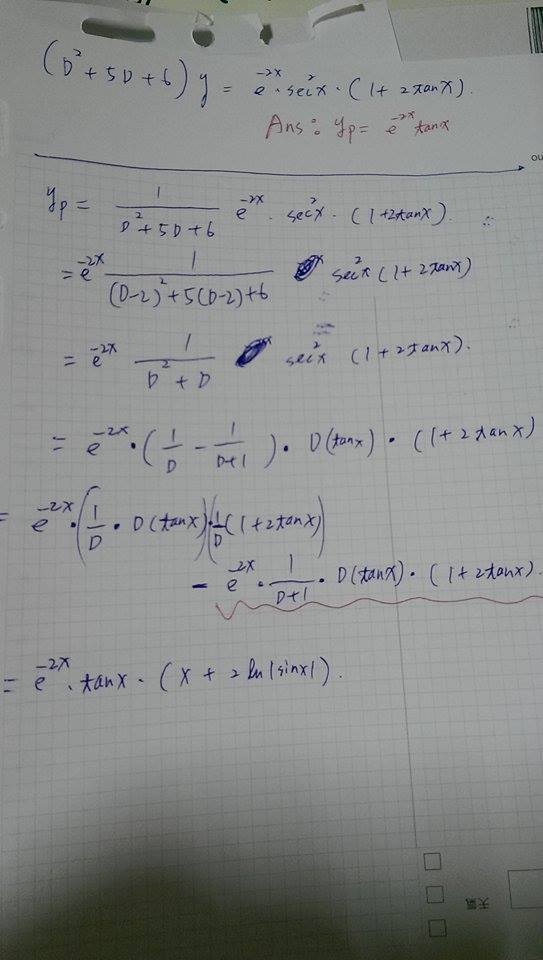 (D²+5D+6)y = e^{-2x}·sec²x·(1+2tanx).
Ans: yp = e^{-2x}tanx
ou
yp = \frac{1}{D²+5D+6} e^{-2x}·sec²x·(1+2tanx).
= e^{-2x} \frac{1}{(D-2)²+5(D-2)+6} sec²x(1+2tanx)
= e^{-2x} \frac{1}{D²+D} sec²x (1+2tanx).
= e^{-2x}·(\frac{1}{D} - \frac{1}{D+1})·D(tanx)·(1+2tanx)
= e^{-2x}·(\frac{1}{D}·D(tanx))·(\frac{1}{D}(1+2tanx))
- e^{-2x}·\frac{1}{D+1}·D(tanx)·(1+2tanx).
= e^{-2x}·tanx·(x+2ln|sinx|).
天氣